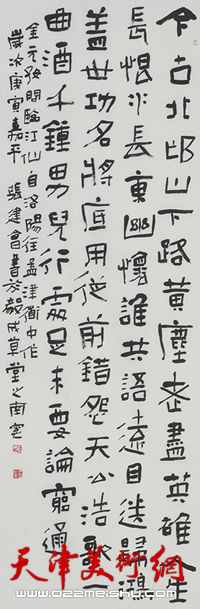 今古北邙山下路黃塵老盡英雄人生
長恨水長東幽懷誰共語遠目送歸鴻
蓋世功名將底用從前錯怨天公浩歌一
曲酒千鍾男兒行處是未要論窮通
金元好問臨江仙 自洛陽往孟津衜中作
歲次庚寅嘉平 張建會書於毅成草堂之南窗
天津美術網
www.022meishu.com